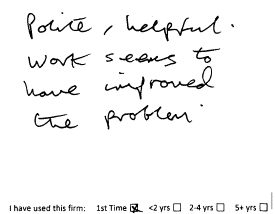 Polite, helpful.
Work seems to
have improved
the problem.
I have used this firm: 1st Time ☒ <2 yrs ☐ 2-4 yrs ☐ 5+ yrs ☐